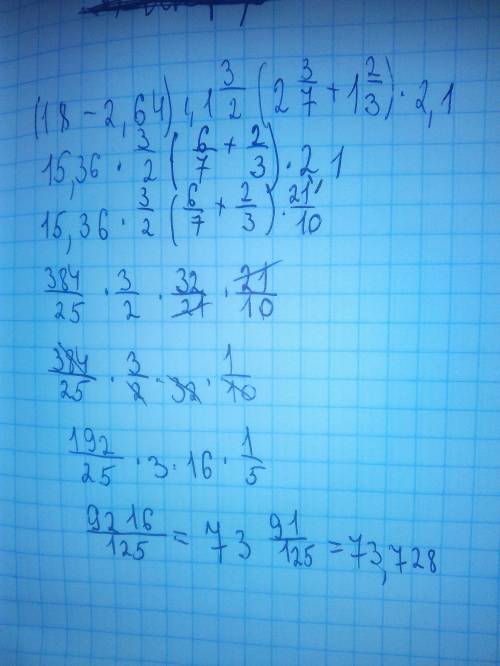 (18 - 2,64) : 1 3/2 (2 3/7 + 1 2/3) · 2,1
15,36 · 3/2 (6/7 + 2/3) · 2,1
15,36 · 3/2 (6/7 + 2/3) · 21/10
384/25 · 3/2 · 32/21 · 21/10
384/25 · 3/2 · 32 · 1/10
192/25 · 3 · 16 · 1/5
9216/125 = 73 91/125 = 73,728